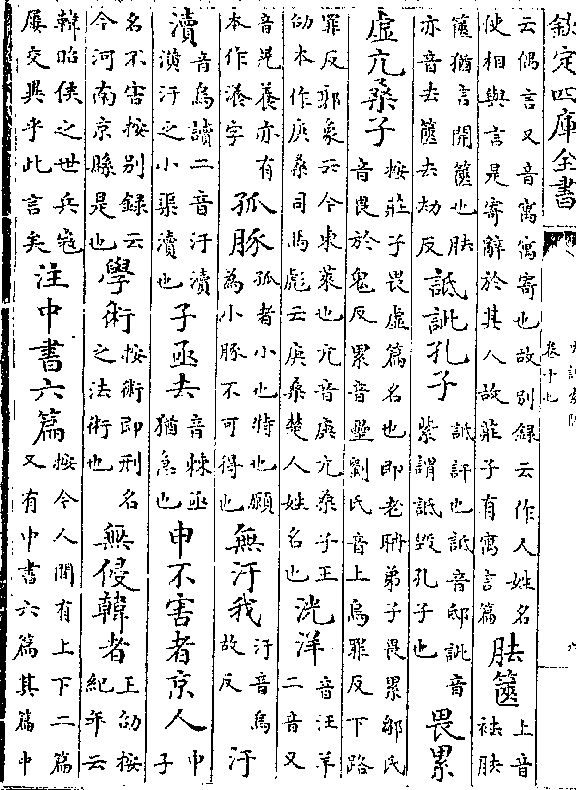 欽定四庫全書
卷十七
云偶言又音寓寓寄也故別録云作人姓名
使相與言是寄辭於其人故莊子有寓言篇
胠篋
上音
袪胠
篋猶言開篋也胠
亦音去篋去劫反
詆訿孔子
詆訐也詆音邸訿音
紫謂詆毀孔子也
畏累
虛亢桑子
按莊子畏虛篇名也即老聃弟子畏累鄒氏
音畏於鬼反累音壘劉氏音上烏罪反下路
罪反郭象云今東萊也亢音庚亢桑子王
劭本作庚桑司馬彪云庚桑楚人姓名也
洸洋
音汪羊
二音又
音晃養亦有
本作瀁字
孤豚
孤者小也特也願
為小豚不可得也
無汙我
汙音烏
故反
汙
瀆
音烏讀二音汙瀆
潢汙之小渠瀆也
子亟去
音棘亟
猶急也
申不害者京人
申
子
名不害按別録云
今河南京縣是也
學術
按術即刑名
之法術也
無侵韓者
王劭按
紀年云
韓昭侯之世兵寇
屢交異乎此言矣
注中書六篇
按今人間有上下二篇
又有中書六篇其篇中